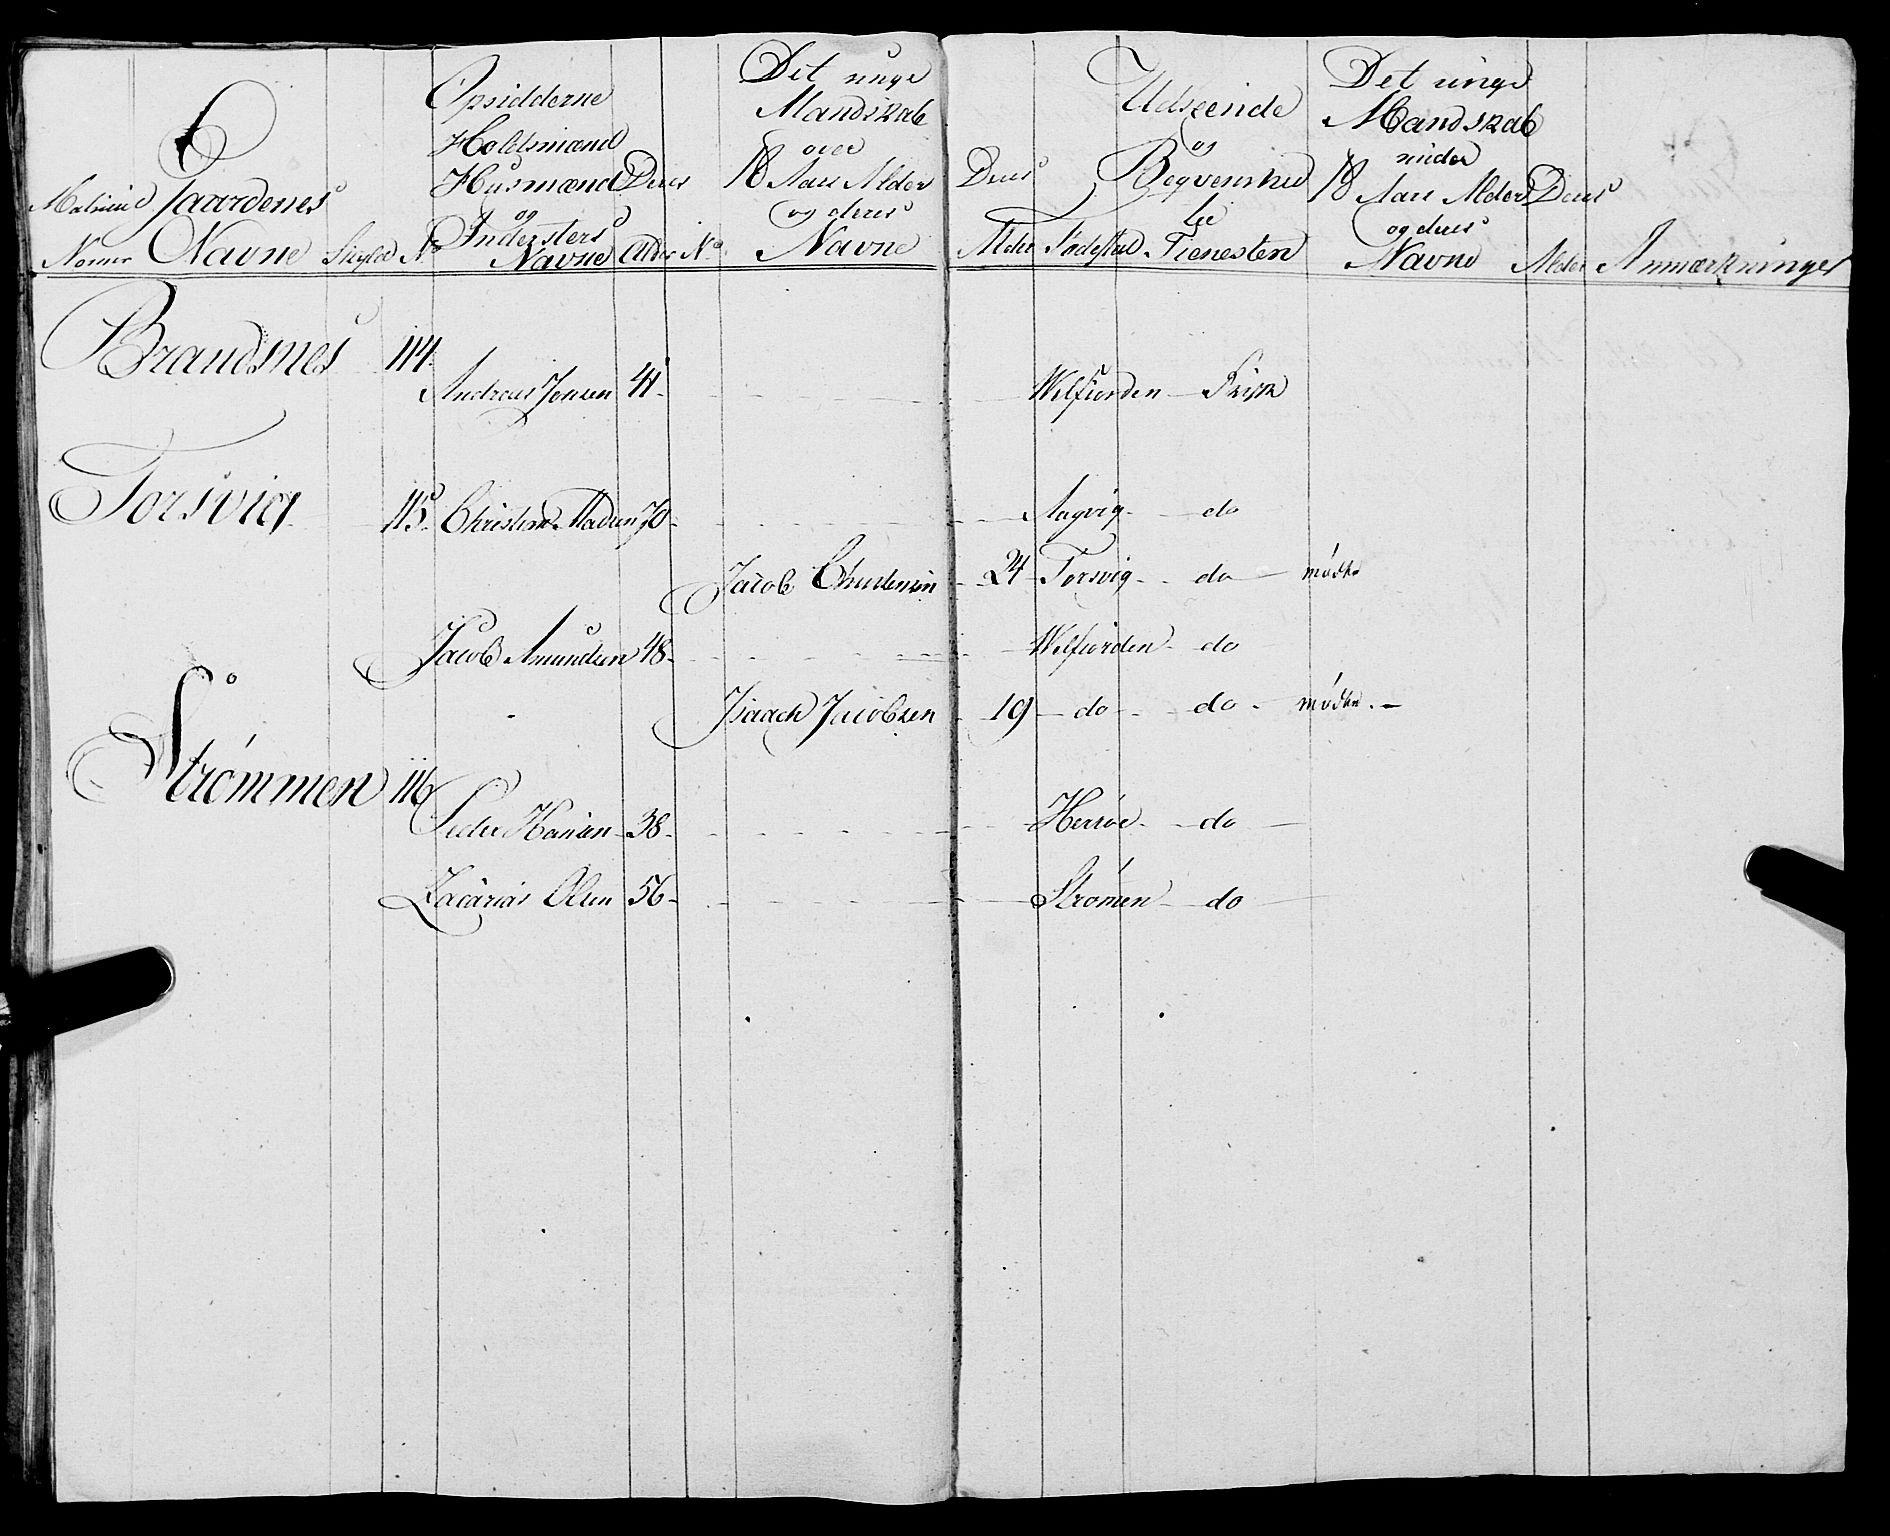 Matricul Nomer
Gaardenes Navne
Skyld
No
Opsidderne Holdsmænd Husmænd og Indersters Navne
Deres Alder
No
Det unge Mandskab over 18 Aars Alder og deres Navne
Deres Alder
Fødested
Udseende og Beqvemhed til Tienesten
Det unge Mandskab under 18 Aars Alder og deres Navne
Deres Alder
Anmærkninger
Brandsnes 114.
Andreas Jensen 41. Welfiorden - Frisk
Torsvig 115. Christen Madsen 70 - Aagvig - do
Jacob Christensen 24 Torsvig - do
Jacob Amundsen 48 - Welfiorden - do
Isaach Jacobsen 19 - do - do -
Strømmen 116
Peder Hansen - 38 - Herrøe - do
Zacarias Olsen 56 - Strømen - do